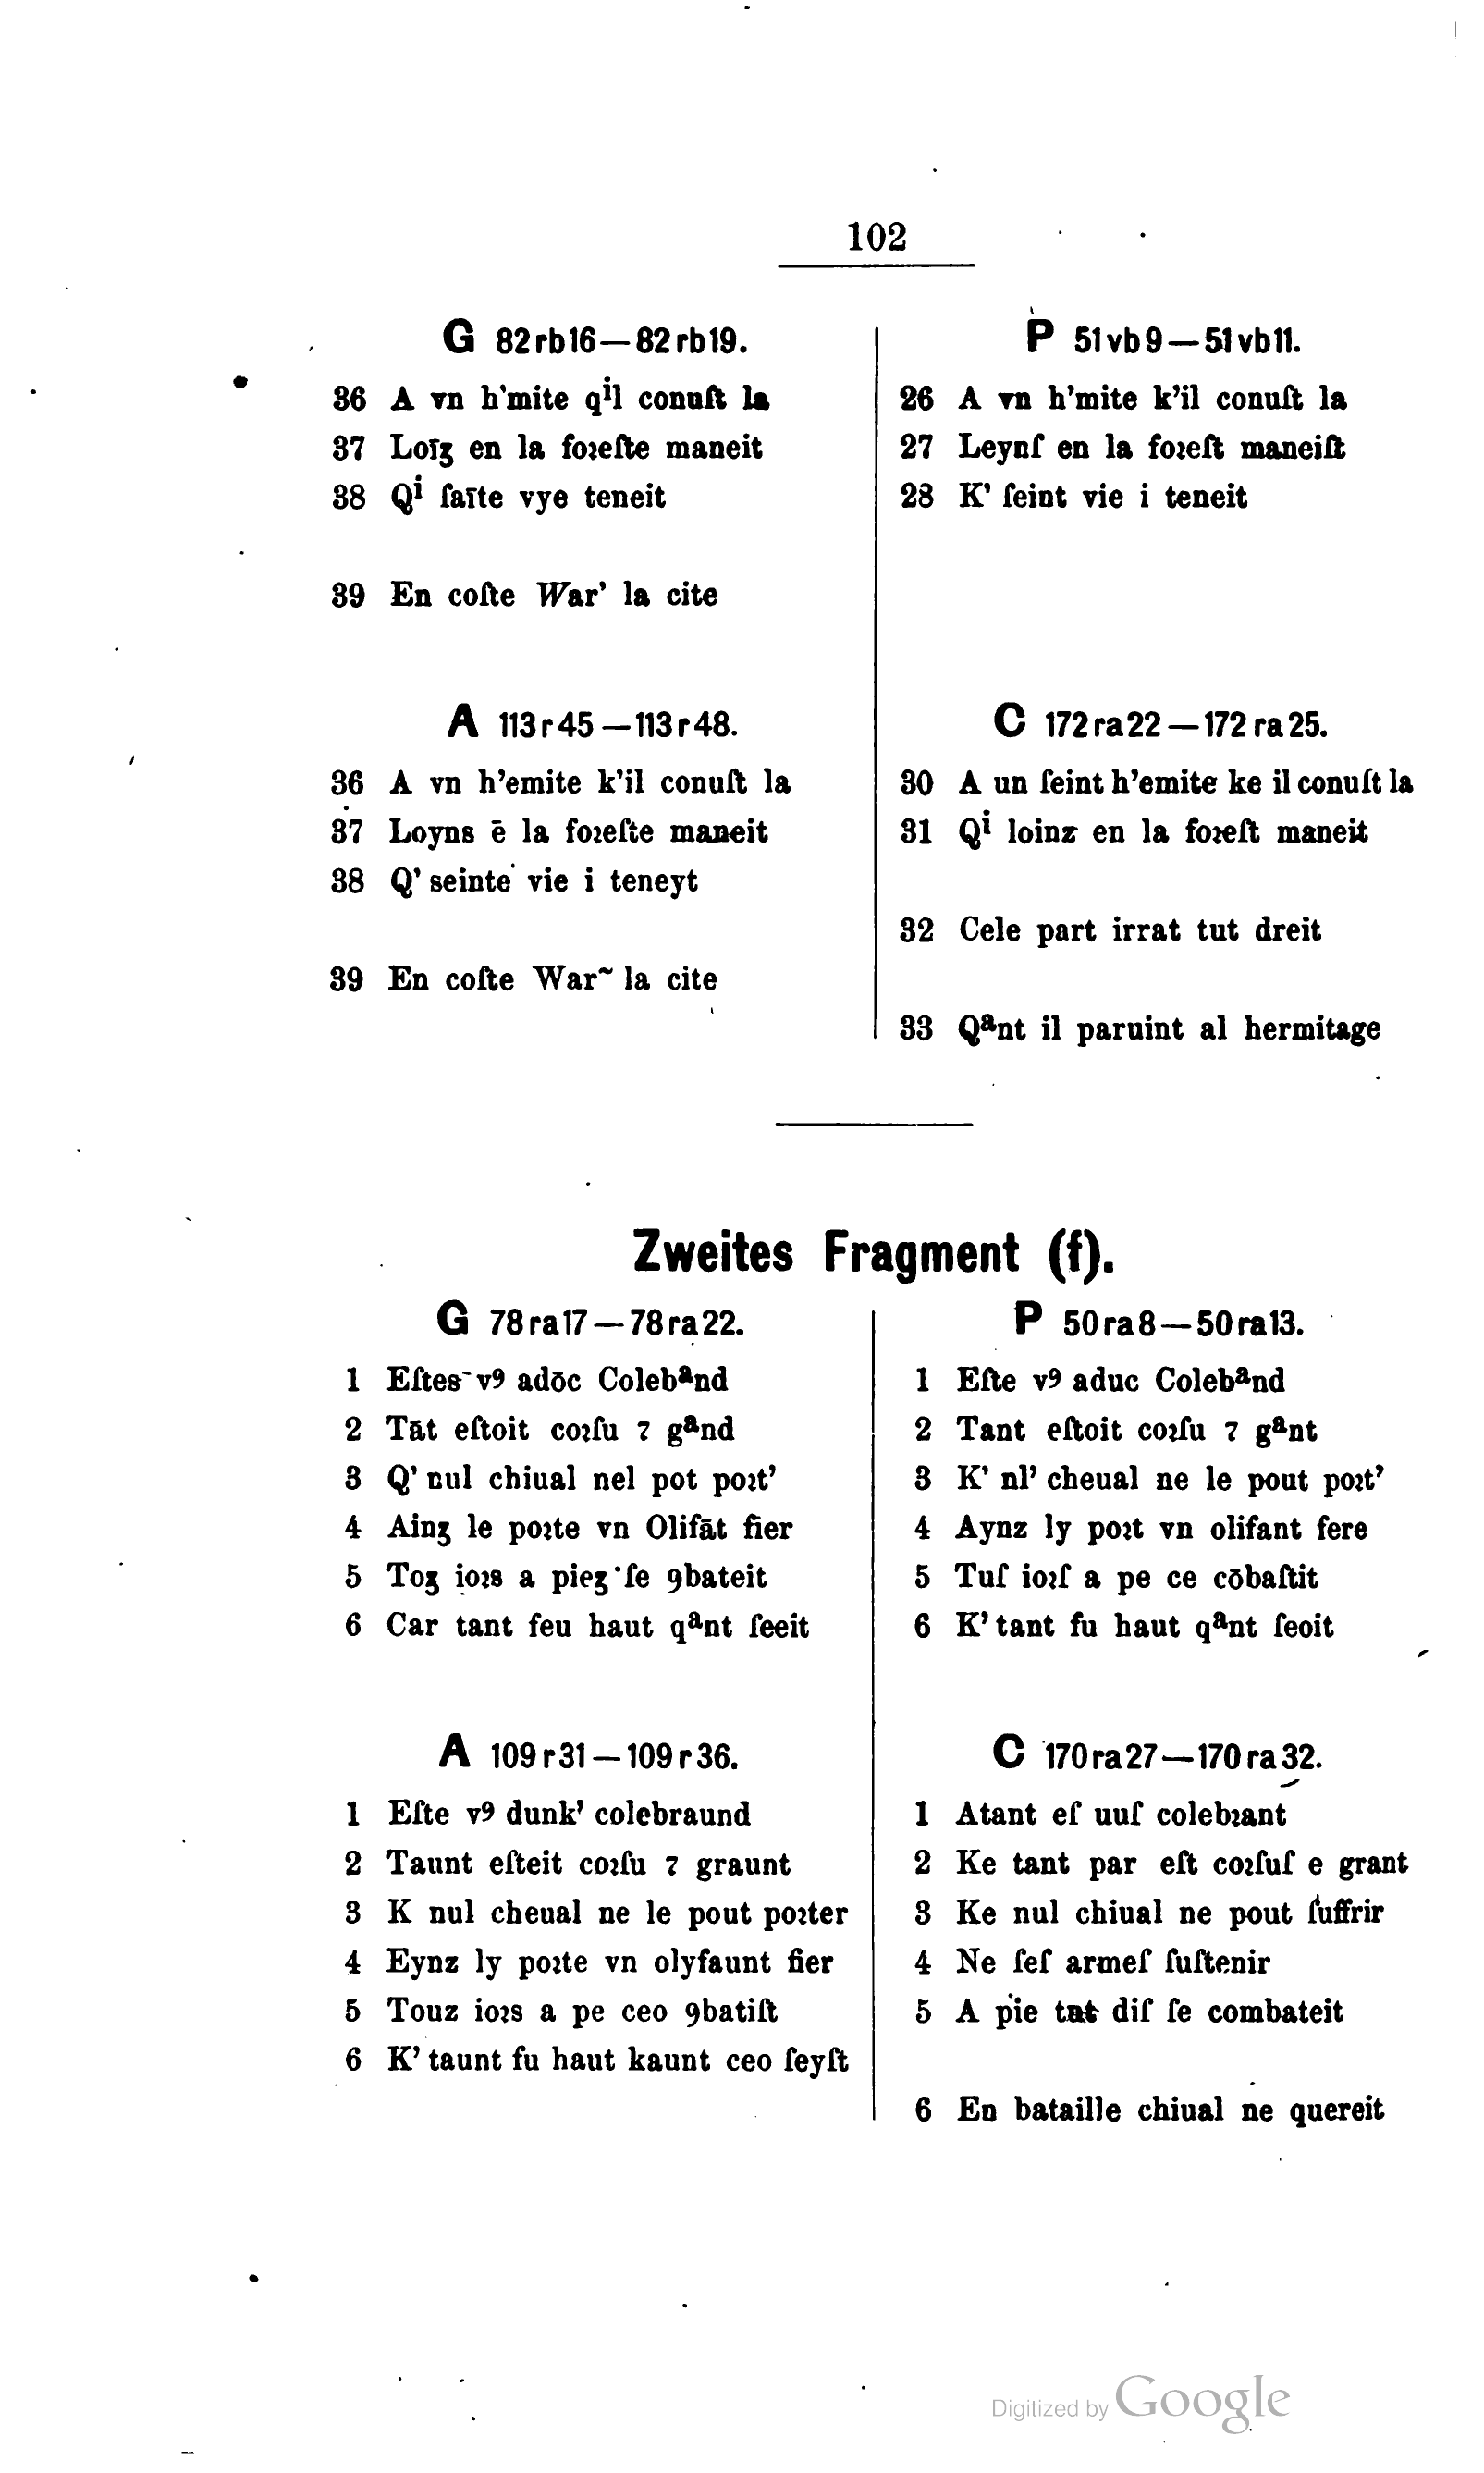 102
G 82rb16—82rb19.
36 A vn h'mite qⁱl conuſt la
37 Loīꝫ en la foꝛeſte maneit
38 Qⁱ ſaīte vye teneit
39 En coſte War' la cite
P 51vb9—51vb11.
26 A vn h'mite k'il conuſt la
27 Leynſ en la foꝛeſt maneiſt
28 K' ſeint vie i teneit
A 113r45—113r48.
36 A vn h'emite k'il conuſt la
37 Loyns ē la foꝛeſte maneit
38 Q' seinte vie i teneyt
39 En coſte War~ la cite
C 172ra22—172ra25.
30 A un ſeint h'emite ke il conuſt la
31 Qⁱ loinz en la foꝛeſt maneit
32 Cele part irrat tut dreit
33 Qᵃnt il paruint al hermitage
Zweites Fragment (f).
G 78ra17—78ra22.
1 Eſtes v9 adōc Colebᵃnd
2 Tāt eſtoit coꝛſu ⁊ gᵃnd
3 Q' nul chiual nel pot poꝛt'
4 Ainꝫ le poꝛte vn Olifāt fier
5 Toꝫ ioꝛs a pieꝫ ſe 9bateit
6 Car tant feu haut qᵃnt ſeeit
P 50ra8—50ra13.
1 Eſte v9 aduc Colebᵃnd
2 Tant eſtoit coꝛſu ⁊ gᵃnt
3 K' nl' cheual ne le pout poꝛt'
4 Aynz ly poꝛt vn olifant fere
5 Tuſ ioꝛſ a pe ce cōbaſtit
6 K' tant fu haut qᵃnt ſeoit
A 109r31—109r36.
1 Eſte v9 dunk' colebraund
2 Taunt eſteit coꝛſu ⁊ graunt
3 K nul cheual ne le pout poꝛter
4 Eynz ly poꝛte vn olyfaunt fier
5 Touz ioꝛs a pe ceo 9batiſt
6 K' taunt fu haut kaunt ceo ſeyſt
C 170ra27—170ra32.
1 Atant eſ uuſ colebꝛant
2 Ke tant par eſt coꝛſuſ e grant
3 Ke nul chiual ne pout ſuffrir
4 Ne ſeſ armeſ ſuſtenir
5 A pie tut diſ ſe combateit
6 En bataille chiual ne quereit
Digitized by Google